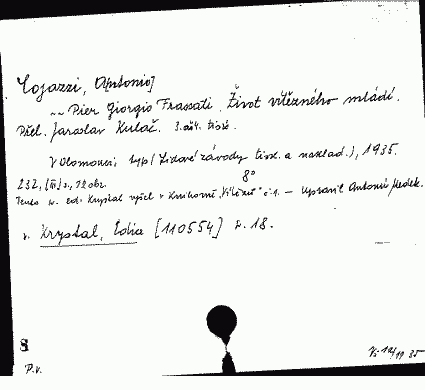 Cojazzi, A[ntonio]
~~ Pier Giorgio Frassati. Život vítězného mládí.
Přel. Jaroslav Kulač. 3. tisíc.
V Olomouci, typ (Lidové závody tisk. a naklad.), 1935.
232, [III] s., 12 obr. 8°
Tento sv. ed. Krystal vyšel v Knihovně "Vítězů" č. 1. — Upravil Antonín
v. Krystal, Edice [110554] sv. 18.
8
P.v.
35